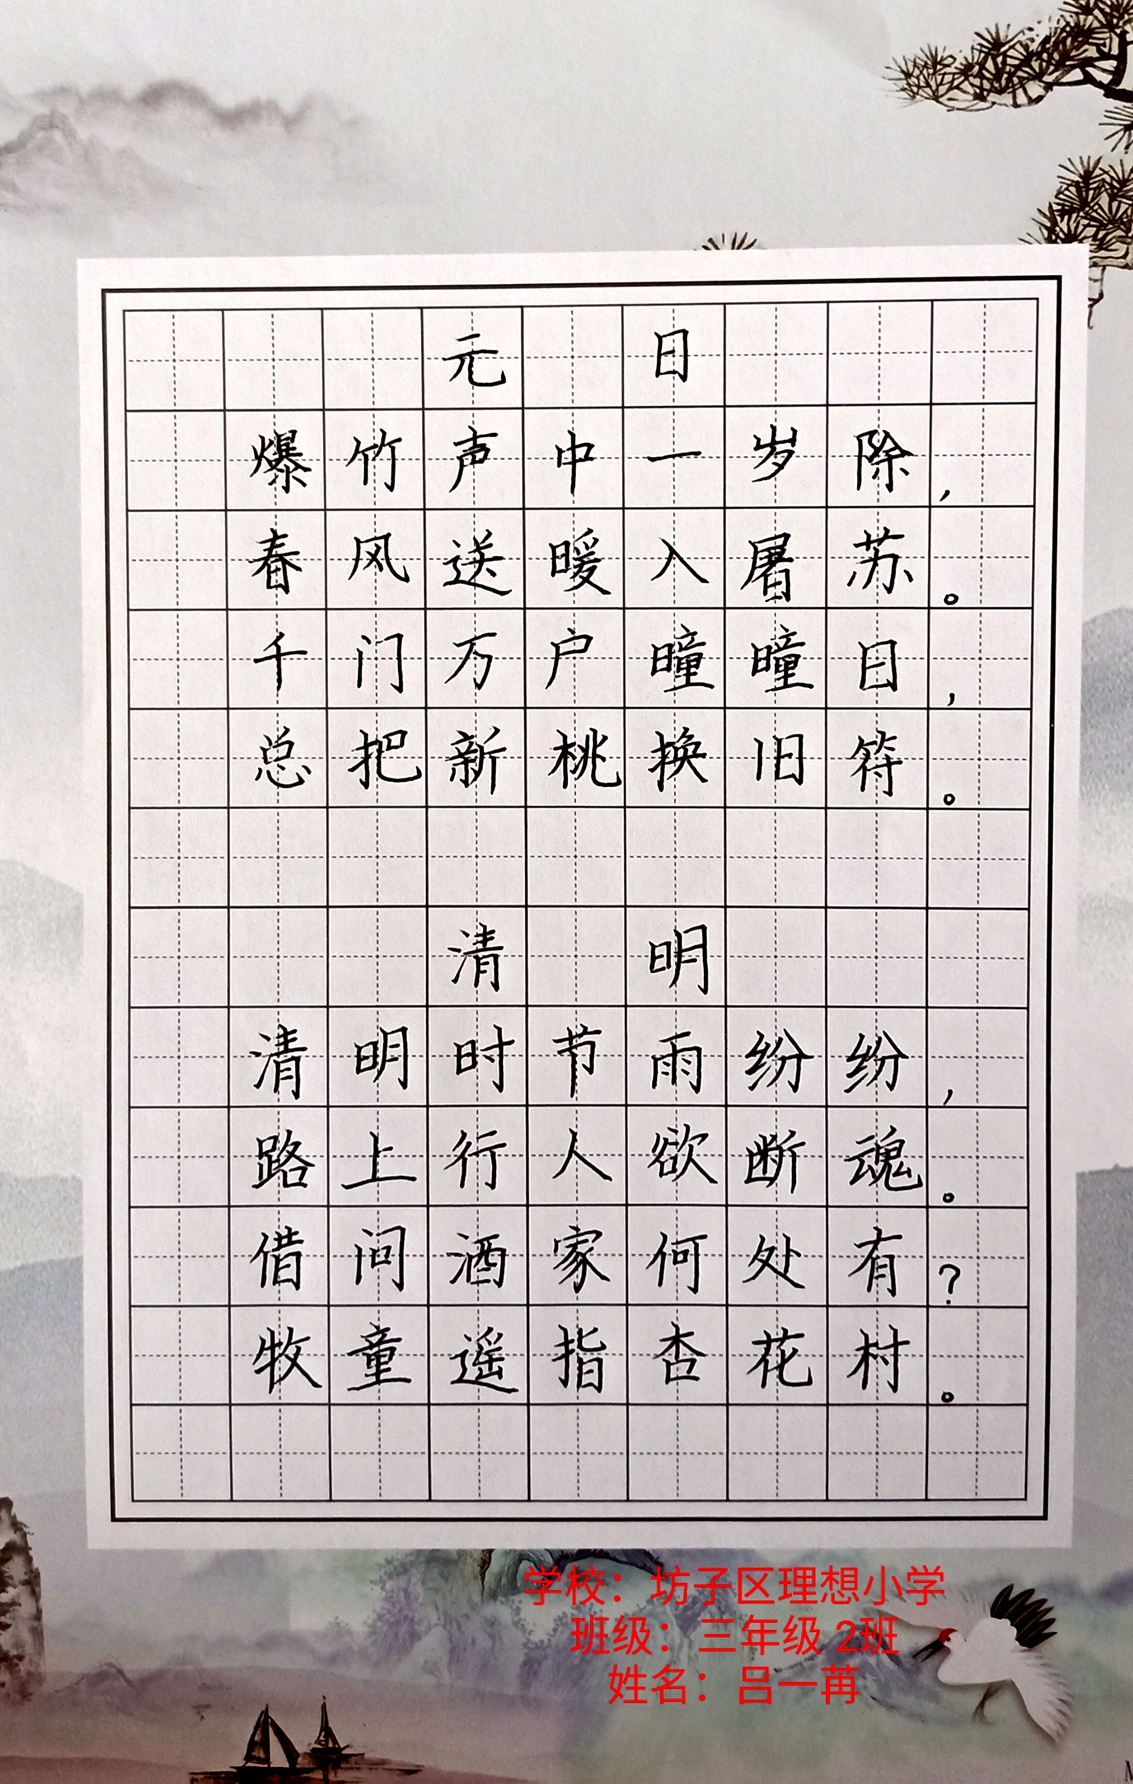 元 日
爆竹声中一岁除,
春风送暖入屠苏。
千门万户曈曈日,
总把新桃换旧符。
清 明
清明时节雨纷纷,
路上行人欲断魂。
借问酒家何处有?
牧童遥指杏花村。
学校：坊子区理想小学
班级：三年级 2班
姓名：吕一苒